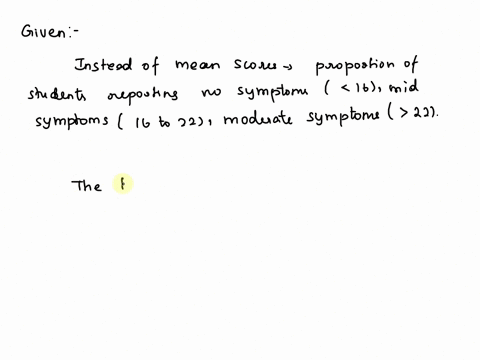 Given:-
Instead of mean scores → proportion of
students reporting no symptoms ( < 16), mid
symptoms ( 16 to 22), moderate symptoms ( > 22).
The